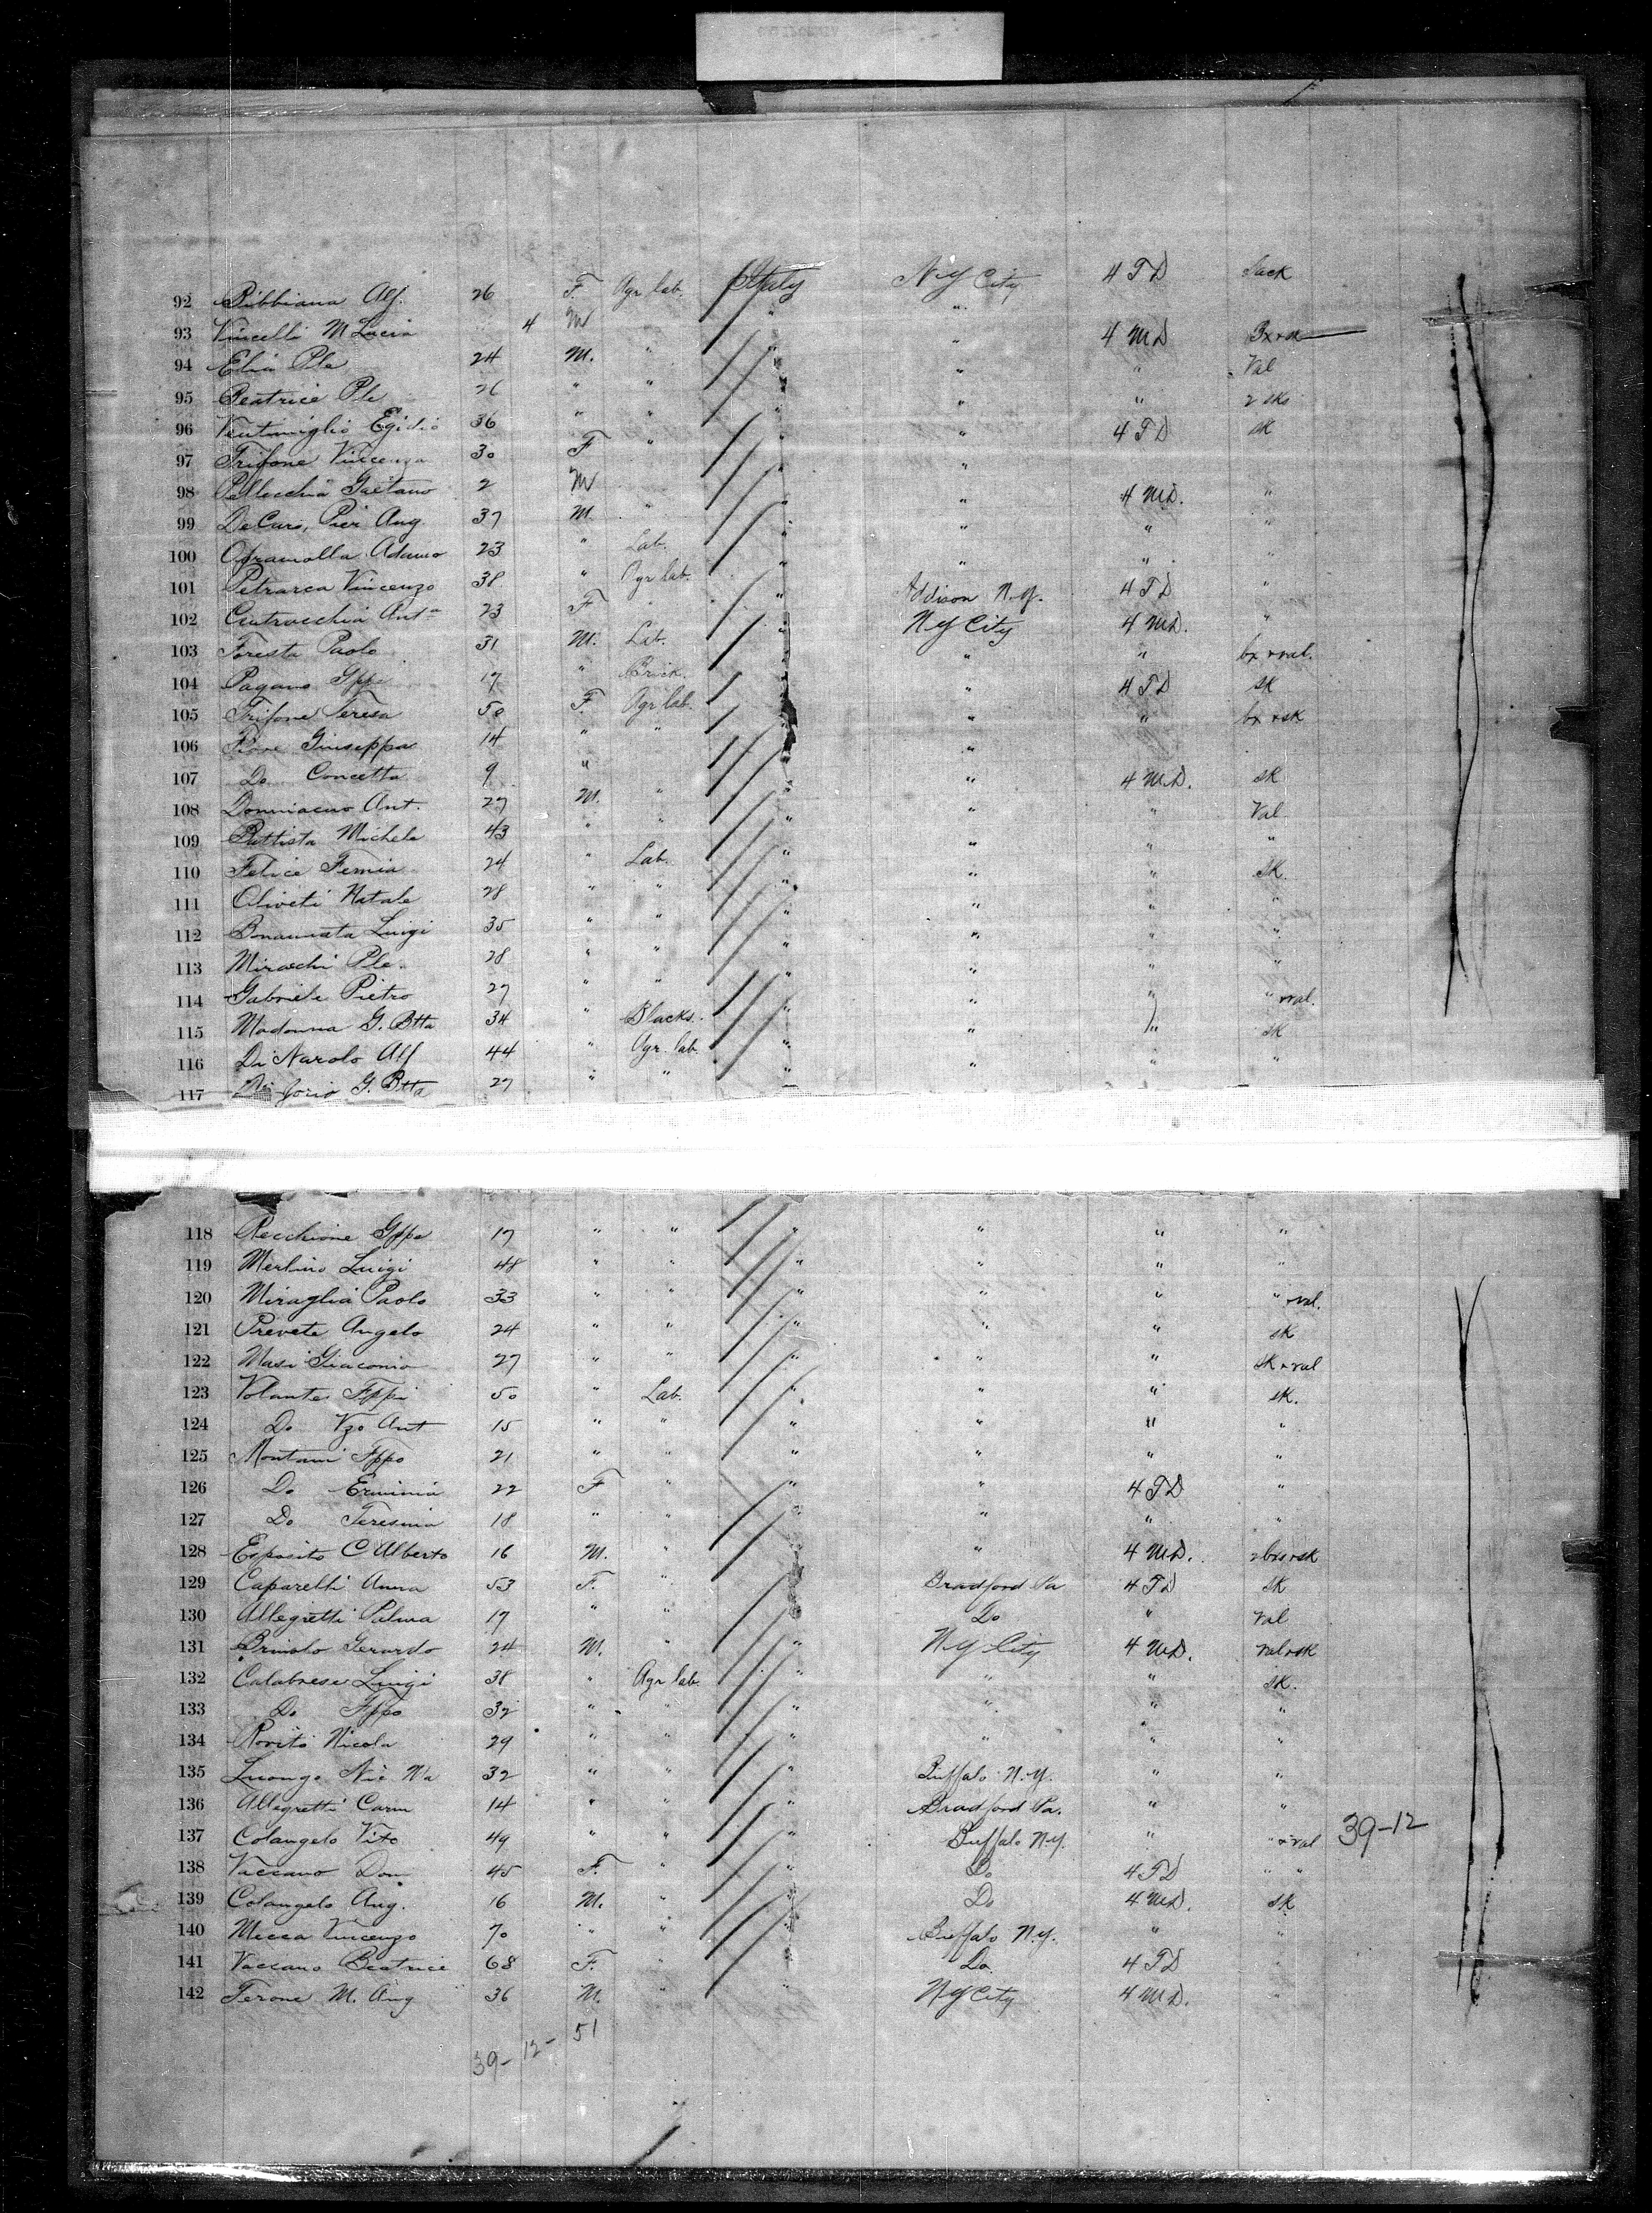 92 Bibbiana Alf. 26 F. Agr lab. Italy N-Y City 4 FD Sack
93 Vincelli M Lucia 4 M " " "
94 Elia Ple 24 M. " " " 4 MD Bx+sk
95 Beatrice Ple 26 " " " " " Val
96 Ventimiglio Egidio 36 " " " " " 2 sks
97 Trifone Vincenza 30 F " " " 4 FD sk
98 Pellecchia Gaetano 2 M " "
99 DeCaro, Pier Ang 37 M. " " " 4 MD. "
100 Adamo 23 " Lab. " " " "
101 Petrarca Vincenzo 38 " Agr lab. " " "
102 Ant 23 F " " Addison N.Y. 4 FD "
103 Foresta Paolo 31 M. Lab. " NY City 4 MD. "
104 Pagano Gppe 17 " Brick. " " " bx+val.
105 Trifone Teresa 50 F. Agr lab. " " 4 FD sk
106 Fiore Giuseppa 14 " " " " " bx+sk
107 Do Concetta 9 " " "
108 Ant. 27 M. " " " 4 MD. sk
109 Battista Michele 43 " " " " " Val
110 Felice Femia 24 " Lab. " " " "
111 Oliveti Natale 28 " " " " " sk.
112 Luigi 35 " " " " " "
113 Ple. 28 " " " " " "
114 Gabriele Pietro 27 " " " " " "
115 Madonna G. Btta 34 " Blacks. " " " " +val.
116 Di Narolo Alf 44 " Agr. lab. " " " sk
117 G. Btta 27 " " " " " "
118 Recchione Gppe 17 " " " " " "
119 Merlino Luigi 48 " " " " " "
120 Miraglia Paolo 33 " " " " " " +val.
121 Prevete Angelo 24 " " " " " sk
122 Masi Giacomo 27 " " " " " sk+val
123 Volante Fppi 50 " Lab. " " " sk.
124 Do Vzo Ant 15 " " " " " "
125 Montani Fppo 21 " " " " " "
126 Do Erminia 22 F " " " 4 FD "
127 Do Teresina 18 " " " " " "
128 Esposito C Alberto 16 M. " " " 4 MD. 2bxs+sk
129 Caparelli Anna 53 F. " " Bradford Pa 4 FD sk
130 Allegretti Palma 17 " " " Do " Val
131 Gerardo 24 M. " " N-Y City 4 MD. val+sk
132 Calabrese Luigi 38 " Agr lab. " " " sk.
133 Do Fppo 32 " " " " " "
134 Rovito Nicola 29 " " " " " "
135 Luongo Nic Ma 32 " " " Buffalo N.Y. " "
136 Allegretti Carm 14 " " " Bradford Pa. " "
137 Colangelo Vito 49 " " " Buffalo N.Y. " " +val 39-12
138 Vaccano Dom 45 F. " " Do 4 FD " "
139 Colangelo Ang. 16 M. " " Do 4 MD. sk
140 Mecca Vincenzo 70 " " " Buffalo N.Y. " "
141 Vaccano Beatrice 68 F. " " Do. 4 FD "
142 Ferone M. Ang 36 M. " " N-Y City 4 MD. "
39- 12- 51